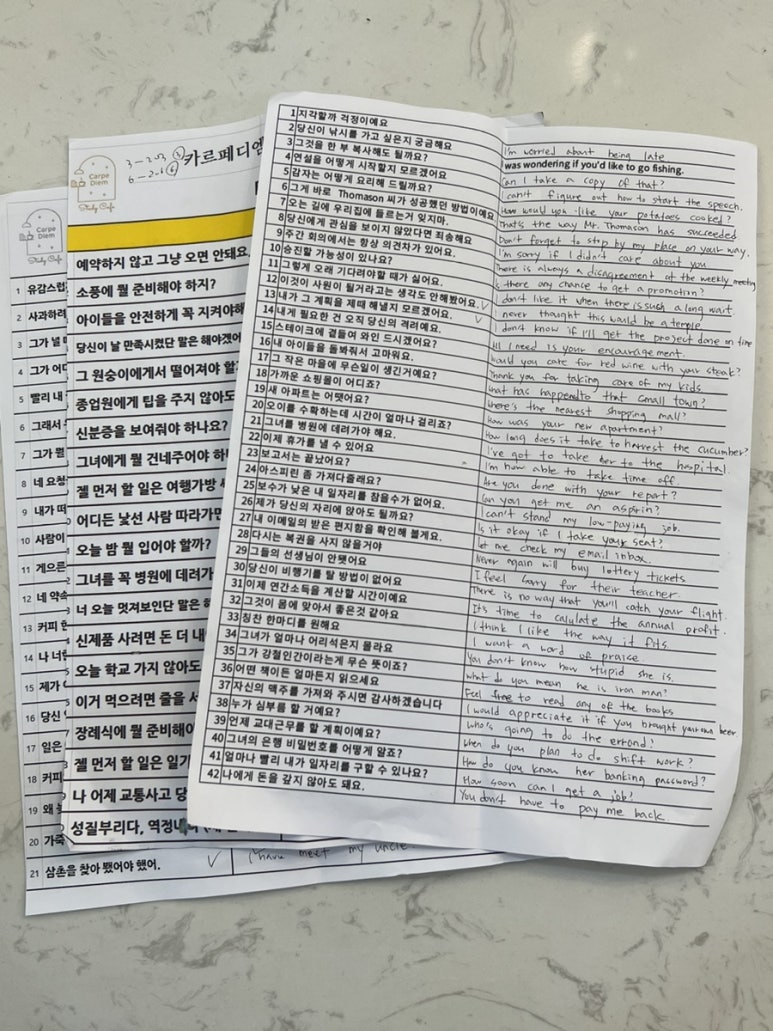 1 지각할까 걱정이예요 I'm worried about being late
2 당신이 낚시를 가고 싶은지 궁금해요 I was wondering if you'd like to go fishing.
3 그것을 한 부 복사해도 될까요? Can I take a copy of that?
4 연설을 어떻게 시작할지 모르겠어요 I can't figure out how to start the speech.
5 감자는 어떻게 요리해 드릴까요? How would you like your potatoes cooked?
6 그게 바로 Thomason 씨가 성공했던 방법이예요 That's the way Mr. Thomason has succeeded
7 오는 길에 우리집에 들르는거 잊지마. Don't forget to stop by my place on your way.
8 당신에게 관심을 보이지 않았다면 죄송해요 I'm sorry if I didn't care about you
9 주간 회의에서는 항상 의견차가 있어요. There is always a disagreement at the weekly meeting
10 승진할 가능성이 있나요? Is there any chance to get a promotion?
11 그렇게 오래 기다려야할 때가 싫어요. I don't like it when there is such a long wait.
12 이것이 사원이 될거라고는 생각도 안해봤어요. never thought this would be a temple
13 내가 그 계획을 제때 해낼지 모르겠어요. I don't know if I'll get the project done on time
14 내게 필요한 건 오직 당신의 격려예요. All I need is your encouragement.
15 스테이크에 곁들여 와인 드시겠어요? Would you care for red wine with your steak?
16 내 아이들을 돌봐줘서 고마워요. Thank you for taking care of my kids
17 그 작은 마을에 무슨일이 생긴거예요? what has happened to that small town?
18 가까운 쇼핑몰이 어디죠? Where's the nearest shopping mall?
19 새 아파트는 어땠어요? How was your new apartment?
20 오이를 수확하는데 시간이 얼마나 걸리죠? How long does it take to harvest the cucumber?
21 그녀를 병원에 데려가야 해요. I've got to take her to the hospital.
22 이제 휴가를 낼 수 있어요 I'm now able to take time off.
23 보고서는 끝났어요? Are you done with your report?
24 아스피린 좀 가져다줄래요? Can you get me an aspirin?
25 보수가 낮은 내 일자리를 참을수가 없어요. I can't stand my low-paying job.
26 제가 당신의 자리에 앉아도 될까요? Is it okay if I take your seat?
27 내 이메일의 받은 편지함을 확인해 볼게요. Let me check my email inbox.
28 다시는 복권을 사지 않을거야 Never again will buy lottery tickets
29 그들의 선생님이 안됐어요 I feel sorry for their teacher.
30 당신이 비행기를 탈 방법이 없어요 There is no way that you'll catch your flight.
31 이제 연간소득을 계산할 시간이예요 It's time to calulate the annual profit.
32 그것이 몸에 맞아서 좋은것 같아요 I think I like the way it fits.
33 칭찬 한마디를 원해요 I want a word of praise
34 그녀가 얼마나 어리석은지 몰라요 You don't know how stupid she is.
35 그가 강철인간이라는게 무슨 뜻이죠? What do you mean he is iron man?
36 어떤 책이든 얼마든지 읽으세요 Feel free to read any of the books
37 자신의 맥주를 가져와 주시면 감사하겠습니다 I would appreciate it if you brought your own beer
38 누가 심부름 할 거예요? Who's going to do the errand?
39 언제 교대근무를 할 계획이예요? When do you plan to do shift work?
40 그녀의 은행 비밀번호를 어떻게 알죠? How do you know her banking password?
41 얼마나 빨리 내가 일자리를 구할 수 있나요? How soon can I get a job?
42 나에게 돈을 갚지 않아도 돼요. You don't have to pay me back.
Carpe Diem
Study Cafe
카르페디엠
예약하지 않고 그냥 오면 안돼요.
소풍에 뭘 준비해야 하지?
아이들을 안전하게 꼭 지켜야해
당신이 날 만족시켰단 말은 해야겠어
그 원숭이에게서 떨어져야 할
종업원에게 팁을 주지 않아도
신분증을 보여줘야 하나요?
그녀에게 뭘 건네주어야 하
젤 먼저 할 일은 여행가방
어디든 낯선 사람 따라가면
오늘 밤 뭘 입어야 할까?
그녀를 꼭 병원에 데려가
너 오늘 멋져보인단 말은
신제품 사려면 돈 더 내
오늘 학교 가지 않아도
이거 먹으려면 줄을
장례식에 뭘 준비해야
젤 먼저 할 일은 일
나 어제 교통사고 당
성질부리다, 역정내
Carpe Diem
Study Cafe
1 유감스럽
2 사과하려
3 그가 널
4 그가 어
5 빨리 내
6 그래서
7 그가 뭘
8 네 요청
9 내가 떠
10 사람이
11 게으른
12 네 약속
13 커피 한
14 나 너
15 제가
16 당신
17 일은
18 커피
19 왜
20 가족
21 삼촌을 찾아 뵀어야 했어. I have meet my uncle